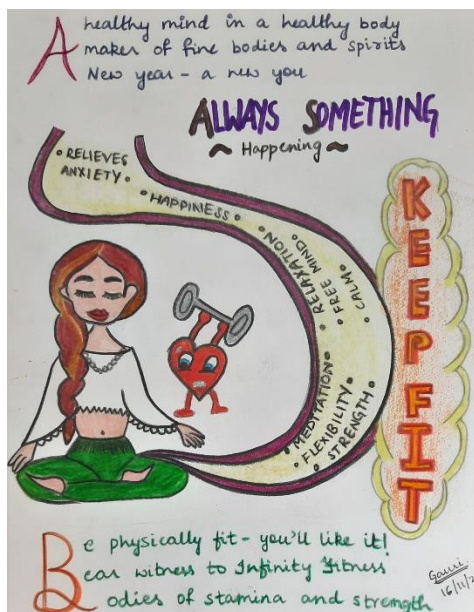 A healthy mind in a healthy body
makes of fine bodies and spirits
New year - a new you
ALWAYS SOMETHING
~ Happening ~
• RELIEVES
ANXIETY •
• HAPPINESS •
RELAXATION •
• FREE MIND •
CALM •
• MEDITATION •
• FLEXIBILITY •
• STRENGTH •
KEEP FIT
Be physically fit - you'll like it!
Bear witness to Infinity Fitness
Bodies of stamina and strength
Gauri
16/11/2